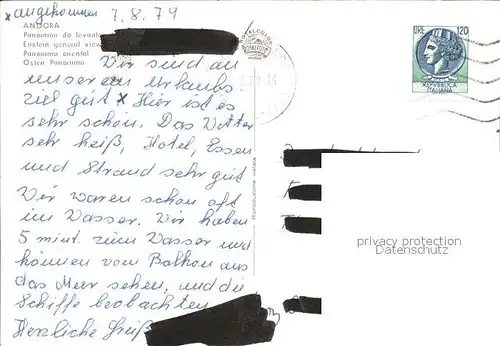 x angekommen 7.8.79
ANDORA
Panorama da levante
Eastern general view
Panorama oriental
Osten Panorama
Wir sind an
unserem Urlaubs
ziel gut x Hier ist es
sehr schön. Das Wetter
sehr heiß, Hotel, Essen
und Strand sehr gut
Wir waren schon oft
im Wasser. Wir haben
5 mint. zum Wasser und
können vom Balkon aus
das Meer sehen, und die
Schiffe beobachten
Herzliche Grüß
LIRE 120
REPVBBLICA
ITALIANA
Riproduzione vietata
privacy protection
Datenschutz